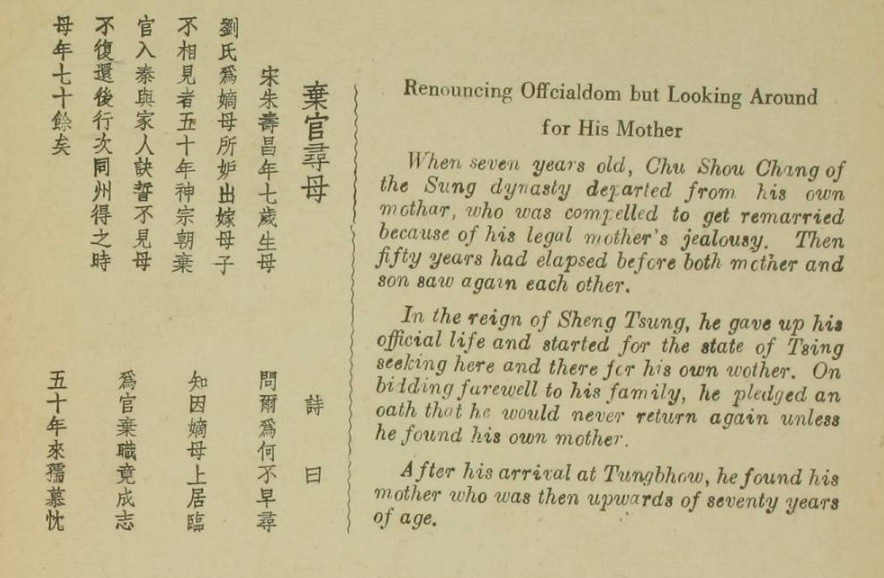 棄官尋母
宋朱壽昌年七歲生母
劉氏爲嫡母所妒出嫁母子
不相見者五十年神宗朝棄
官入秦與家人訣誓不見母
不復還後行次同州得之時
母年七十餘矣
詩曰
問爾爲何不早尋
知因嫡母上居臨
爲官棄職竟成志
五十年來孺慕忱
Renouncing Offcialdom but Looking Around
for His Mother
When seven years old, Chu Shou Chang of
the Sung dynasty departed from his own
mothar, who was compelled to get remarried
because of his legal mother's jealousy. Then
fifty years had elapsed before both mother and
son saw again each other.
In the reign of Sheng Tsung, he gave up his
official life and started for the state of Tsing
seeking here and there for his own wother. On
bidding farewell to his family, he pledged an
oath that he would never return again unless
he found his own mother.
After his arrival at Tungbhow, he found his
mother who was then upwards of seventy years
of age.